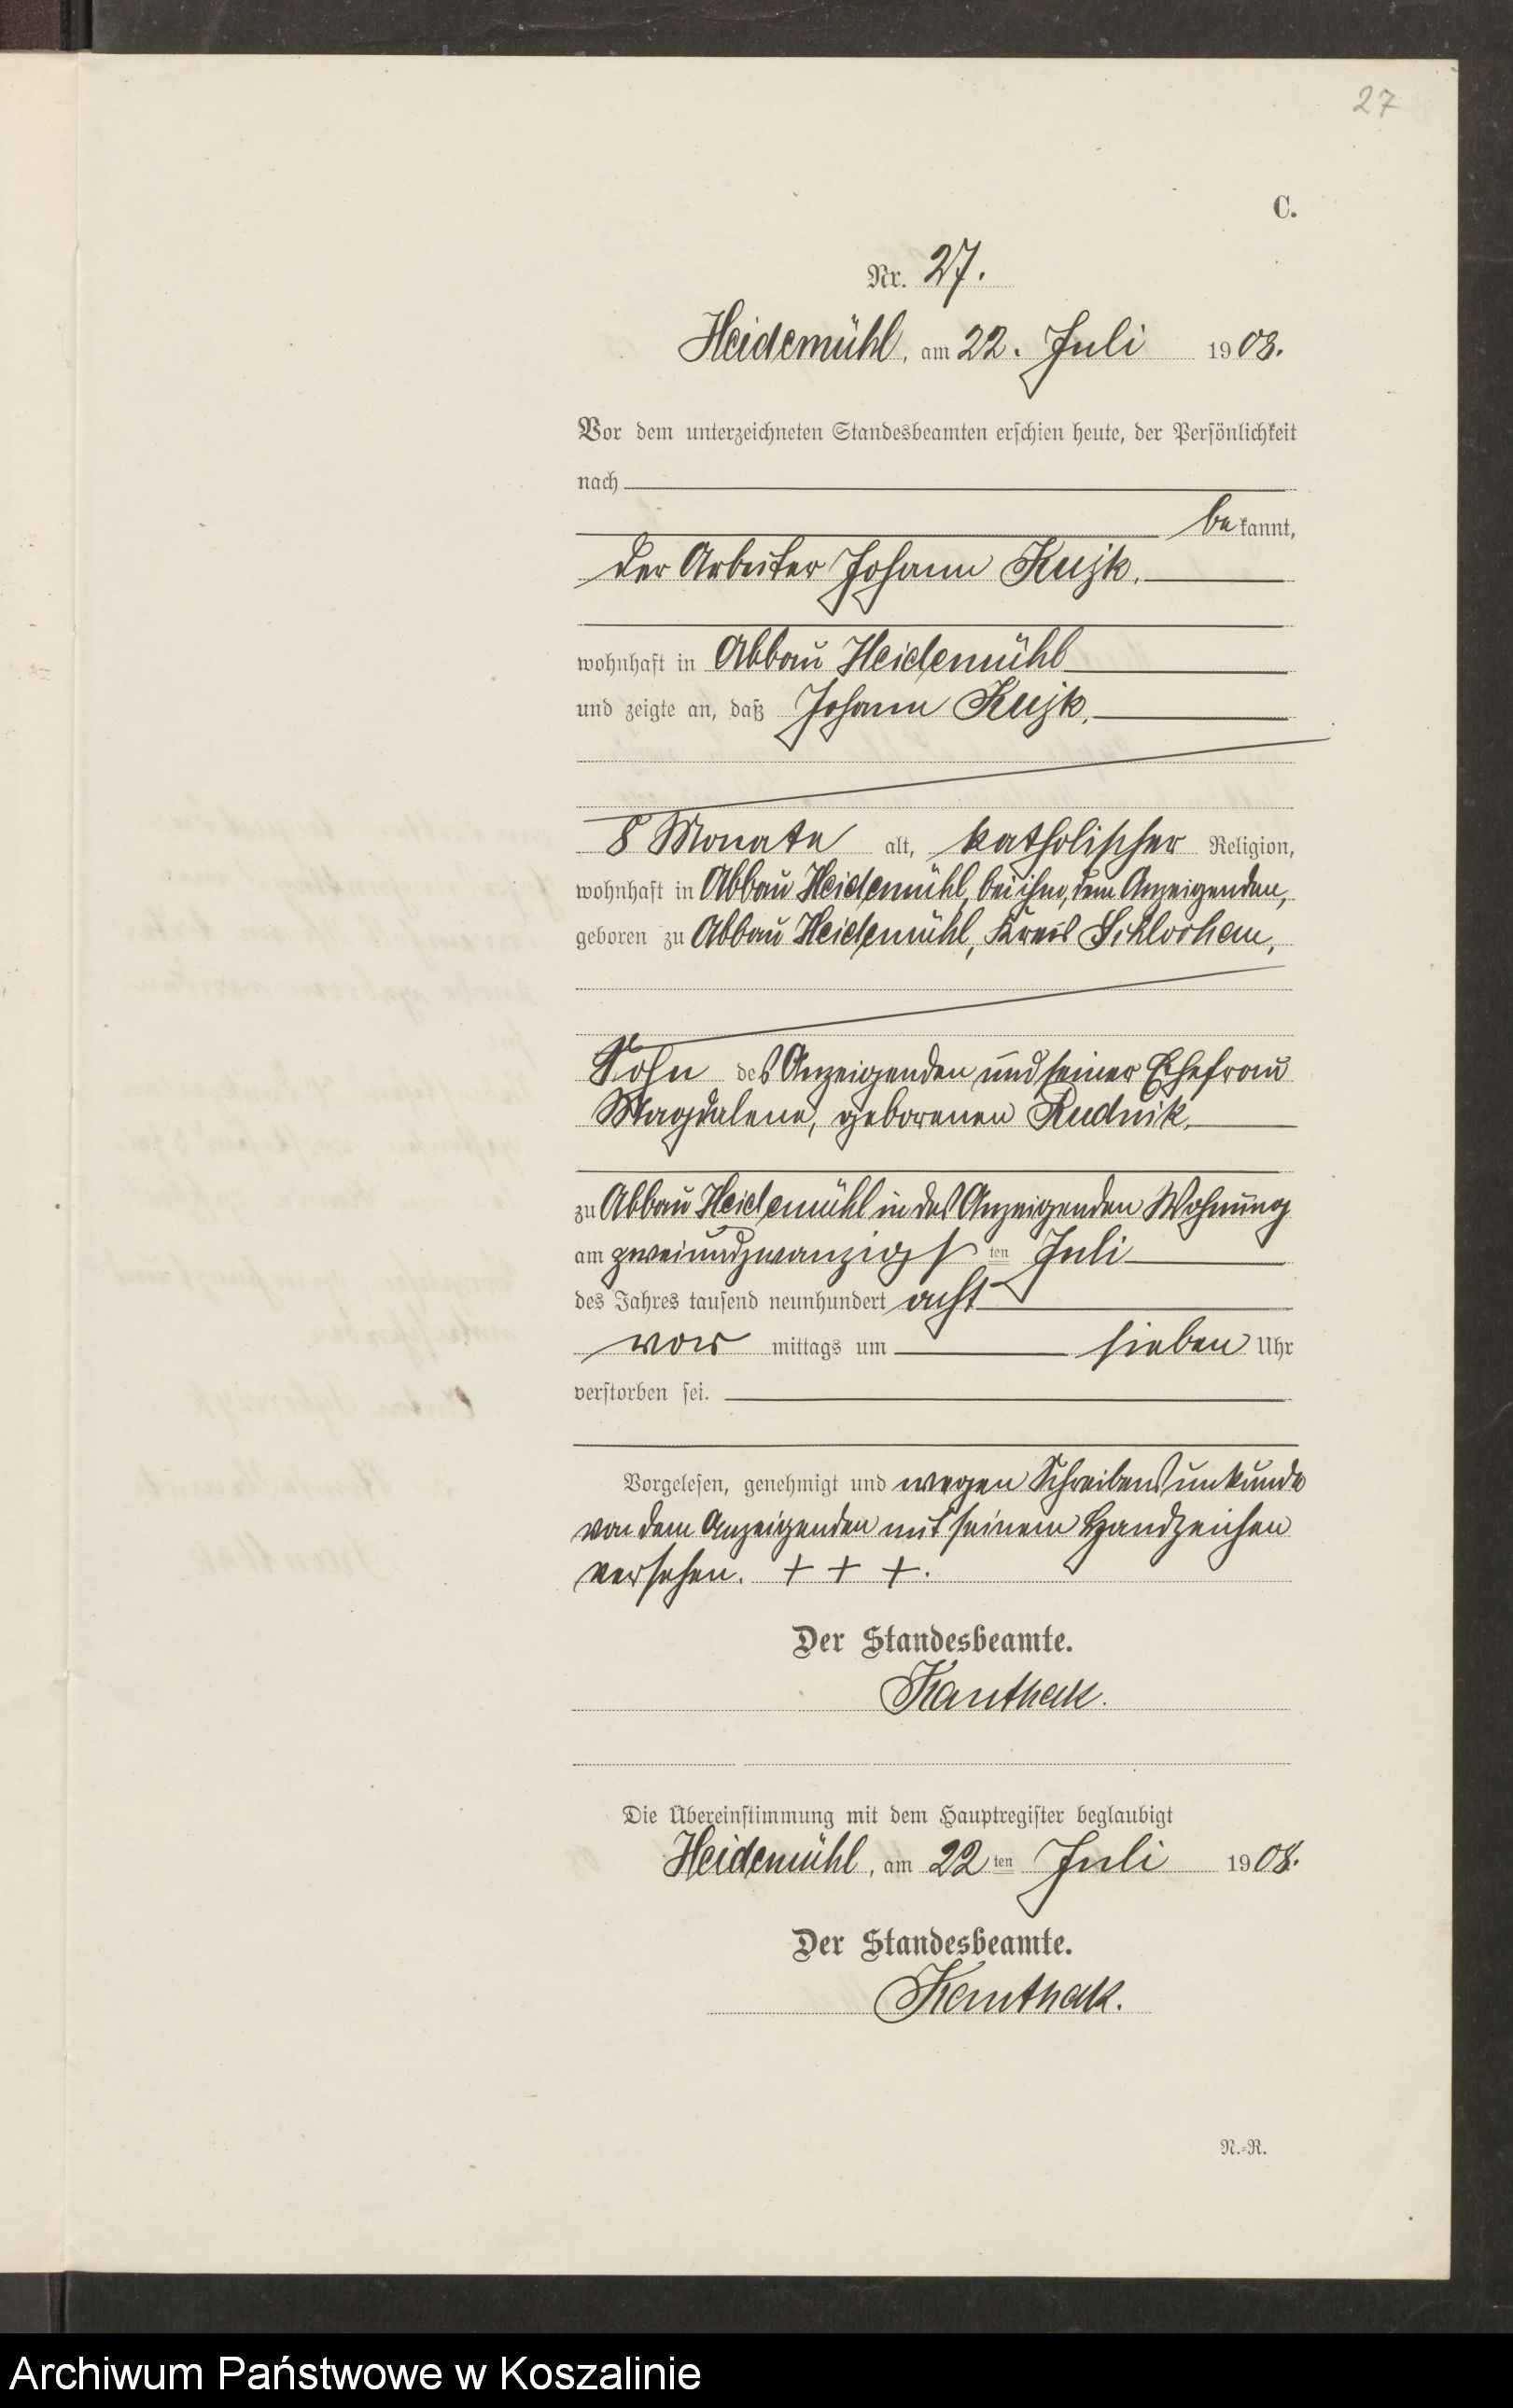 27
C.
Nr. 27.
Heidemühl, am 22. Juli 1908.
Vor dem unterzeichneten Standesbeamten erschien heute, der Persönlichkeit
nach
bekannt,
der Arbeiter Johann Kujk.
wohnhaft in Abbau Heidemühl
und zeigte an, daß Johann Kujk,
8 Monate alt, katholischer Religion,
wohnhaft in Abbau Heidemühl, bei ihm, dem Anzeigenden,
geboren zu Abbau Heidemühl, Kreis Schlochau,
Sohn des Anzeigenden und seiner Ehefrau
Magdalene, geborenen Rudnik,
zu Abbau Heidemühl in des Anzeigenden Wohnung
am zweiundzwanzigsten Juli
des Jahres tausend neunhundert acht
vormittags um sieben Uhr
verstorben sei.
Vorgelesen, genehmigt und wegen Schreibensunkunde
von dem Anzeigenden mit seinem Handzeichen
versehen. + + +.
Der Standesbeamte.
Kanthak.
Die Übereinstimmung mit dem Hauptregister beglaubigt
Heidemühl, am 22ten Juli 1908.
Der Standesbeamte.
Kanthak.
N.=R.
Archiwum Państwowe w Koszalinie